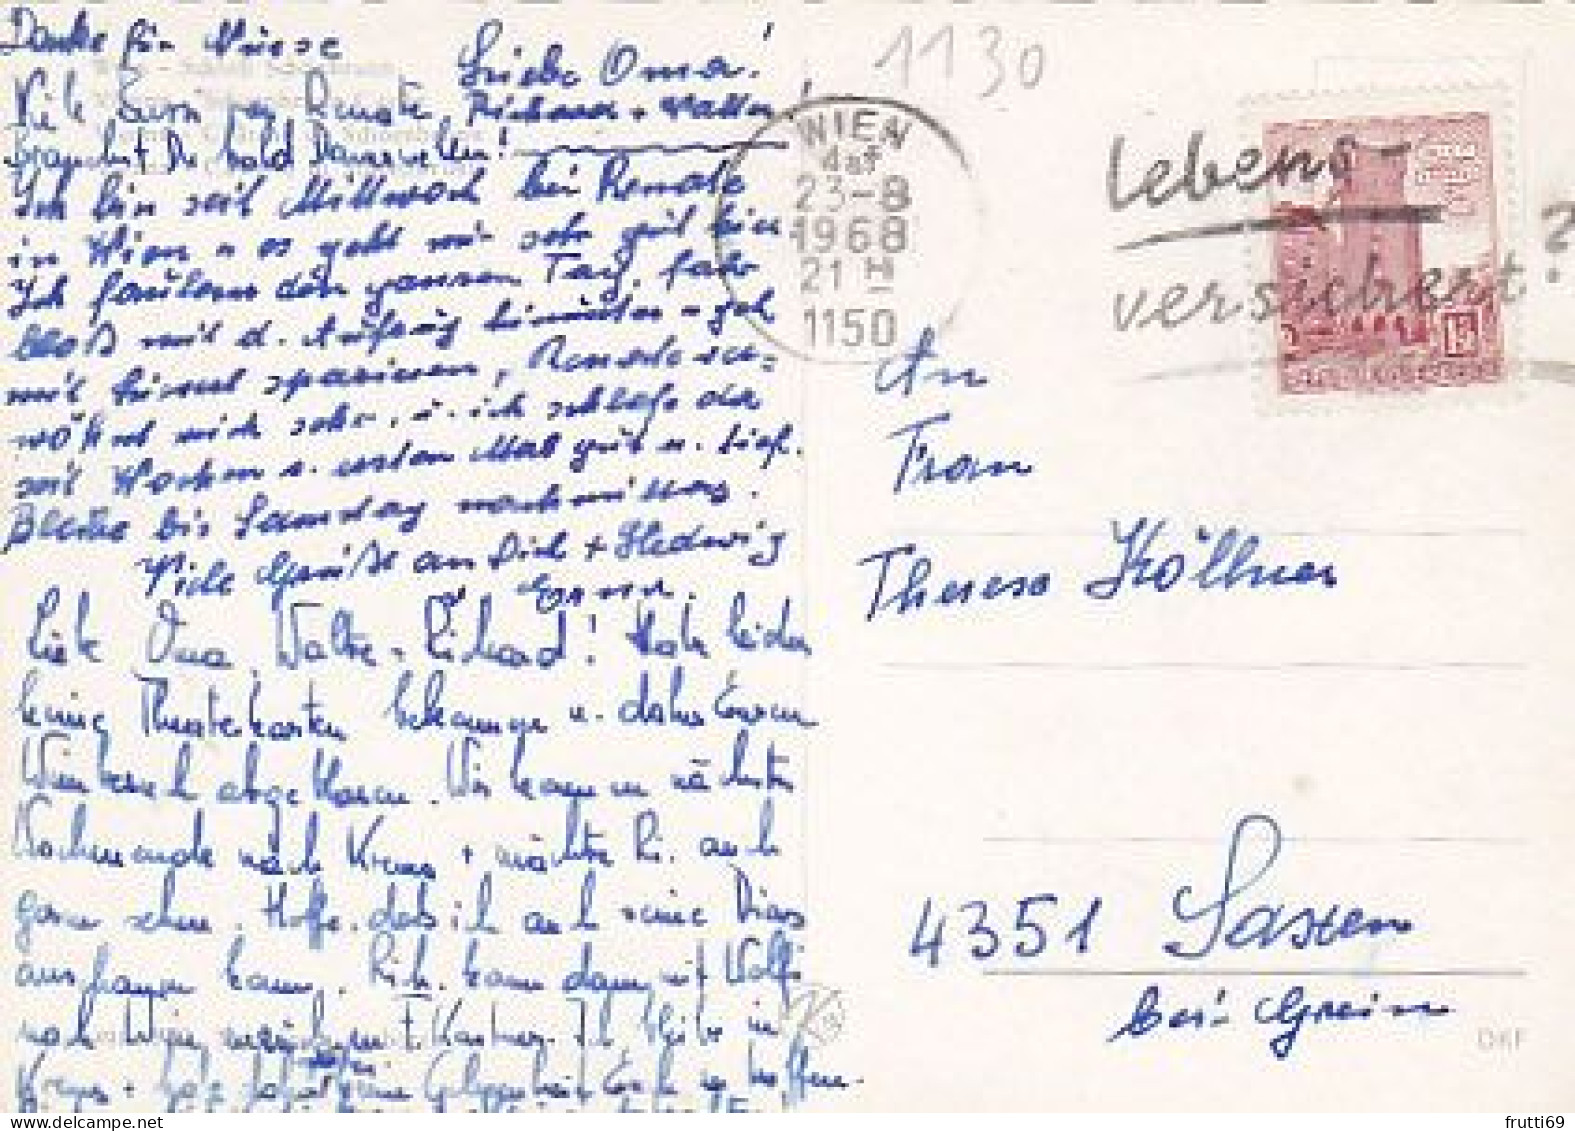 Danke für
Liebe Oma!
Viele Renate, Richard + Walter!
Brauchst Du bald Dauerwellen!
Ich bin seit Mittwoch bei Renate
in Wien u. es geht mir sehr gut hier
Ich faulenz den ganzen Tag, fahr
bloß mit d. Aufzug hinunter u. geh
mit spazieren, Renate ver-
wöhnt mich sehr, u. ich schlafe da
seit Wochen z. ersten Mal gut u. tief.
Bleibe bis Samstag nachmittag.
Viele Grüße an Dich + Hedwig
Liebe Oma, Walter, Richard! Habe leider
keine Theaterkarten bekommen u. daher
abgeblasen. Wir kommen nächstes
Wochenende nach Krems + möchte Ri. auch
gerne sehen. Hoffe, daß ich auch meine Dias
anschauen kann. Rich. kann dann mit Wolfi
nach Wien Ich bleibe in
Krems + Gelegenheit Euch zu treffen.
1130
WIEN
23-8
1968
21 H
1150
Lebens-
versichert?
An
Frau
Therese Köllner
4351 Saxen
bei Grein
DKF
frutti69